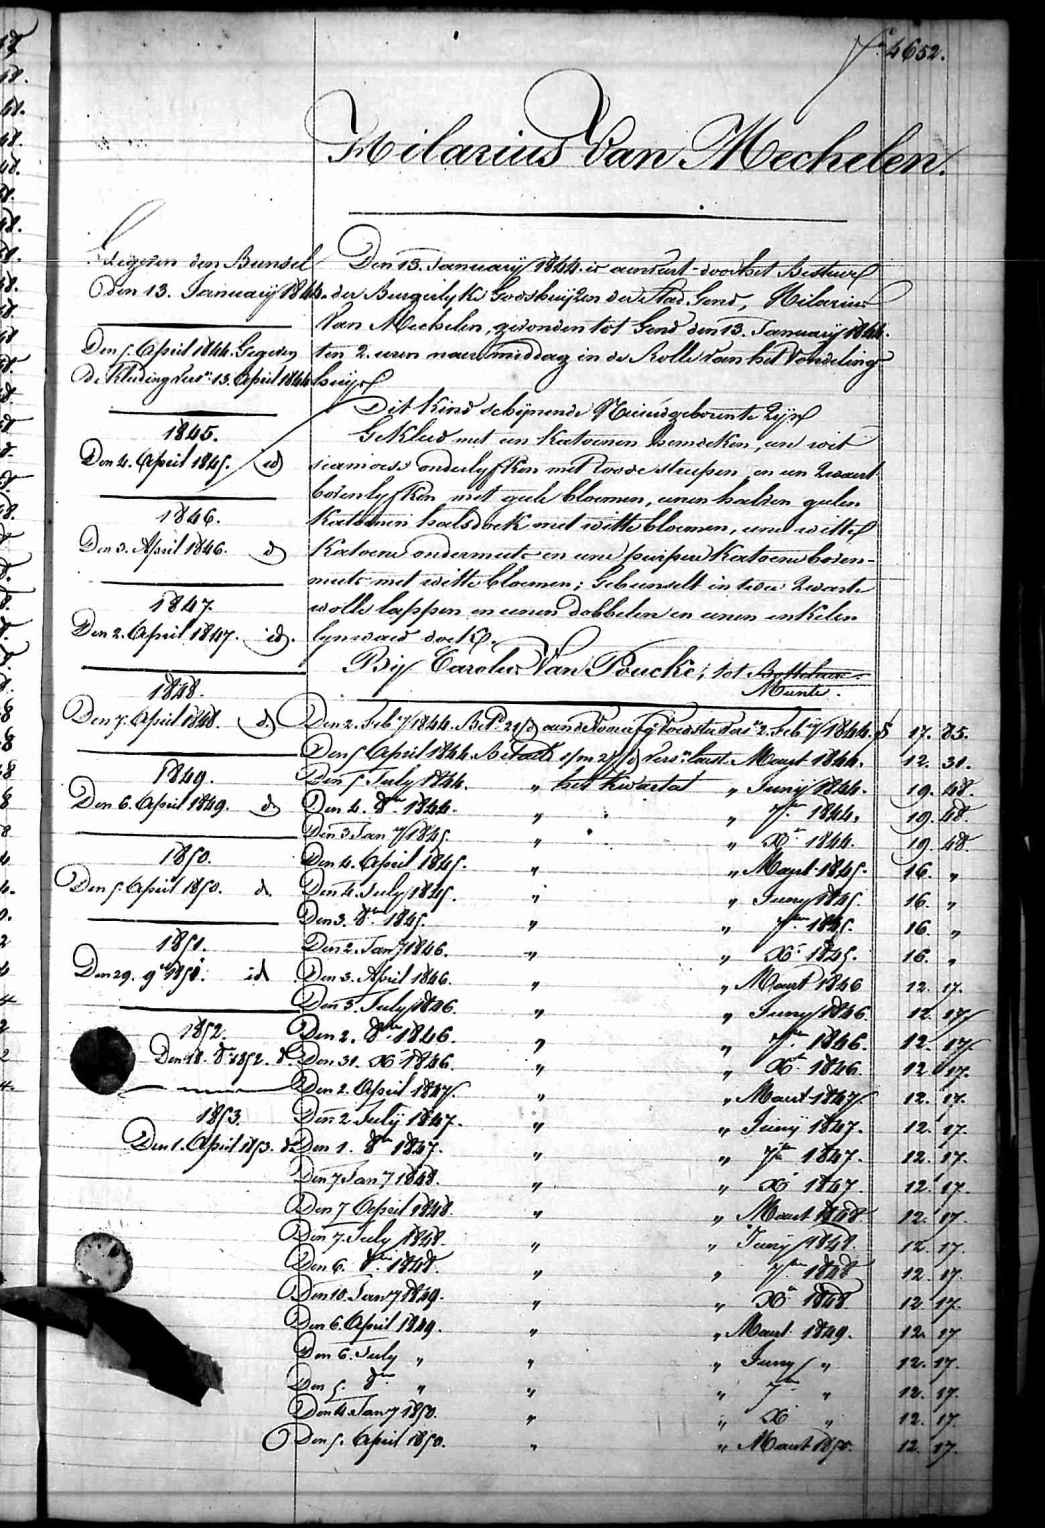 f° 4652.
Hilarius Van Mechelen.
Gegeven den Bunsel
den 13. January 1844.
Den 5. April 1844. Gegeven
de Kleding vers.n 13. April 1844
1845.
Den 4. April 1845. id
1846.
Den 3. April 1846. id
1847.
Den 2. April 1847. id.
1848.
Den 7. April 1848. id
1849.
Den 6. April 1849. id
1850.
Den 5. April 1850. id
1851.
Den 29. 9bre 1850. id
1852.
Den 18. 8bre 1852. id
1853.
Den 1. April 1853. id
Den 13. January 1844. is aenveert door het Bestuer
der Burgerlyke Godshuijzen der Stad Gend, Hilarius
Van Mechelen, gevonden tot Gend den 13. January 1844.
ten 2. uren naer middag in de Rolle van het Vondeling
huijs
Dit Kind schijnende Nieuwgeboren te Zijn
Gekleed met een Katoenen hemdeken, een wit
siamoes onderlyfken met roode streepen, en een Zwart
bovenlyfken met geele bloemen, eenen halven geelen
Katoenen halsdoek met witte bloemen, eene witte
Katoene ondermuts en eene purpere Katoene boven-
muts met witte bloemen; Gebunselt in twee Zwarte
wolle lappen en eenen dobbelen en eenen enkelen
lynwaed doek.
Bij Carolus Van Poucke, tot Bottelaere
Munte.
Den 2. Feby 1844. Bet.d aen de voedster vers.n 2. Feby 1844. 17. 85.
Den 5 April 1844. Betaelt vers.n laest. Maert 1844. 12. 31.
Den 5. July 1844. " het kwartael " Juny 1844. 19. 48.
Den 4. 8bre 1844. " " 7bre 1844. 19. 48.
Den 3 Jany 1845. " " Xbre 1844. 19. 48.
Den 4. April 1845. " " Maert 1845. 16. "
Den 4. July 1845. " " Juny 1845. 16. "
Den 3. 8bre 1845. " " 7bre 1845. 16. "
Den 2. Jany 1846. " " Xbre 1845. 16. "
Den 3. April 1846. " " Maert 1846 12. 17.
Den 3. July 1846. " " Juny 1846. 12. 17
Den 2. 8bre 1846. " " 7bre 1846. 12. 17.
Den 31. Xbre 1846. " " Xbre 1846. 12. 17.
Den 2. April 1847. " " Maert 1847 12. 17.
Den 2 July 1847. " " Juny 1847. 12. 17.
Den 1. 8bre 1847. " " 7bre 1847. 12. 17.
Den 7 Jany 1848. " " Xbre 1847. 12. 17.
Den 7 April 1848. " " Maert 1848 12. 17.
Den 7. July 1848. " " Juny 1848. 12. 17.
Den 6. 8bre 1848. " " 7bre 1848 12. 17.
Den 10. Jany 1849. " " Xbre 1848 12. 17.
Den 6. April 1849. " " Maert 1849. 12. 17
Den 6. July " " " Juny " 12. 17.
Den 5. 8bre " " " 7bre " 12. 17.
Den 4 Jany 1850. " " Xbre " 12. 17.
Den 5. April 1850. " " Maert 1850. 12. 17.